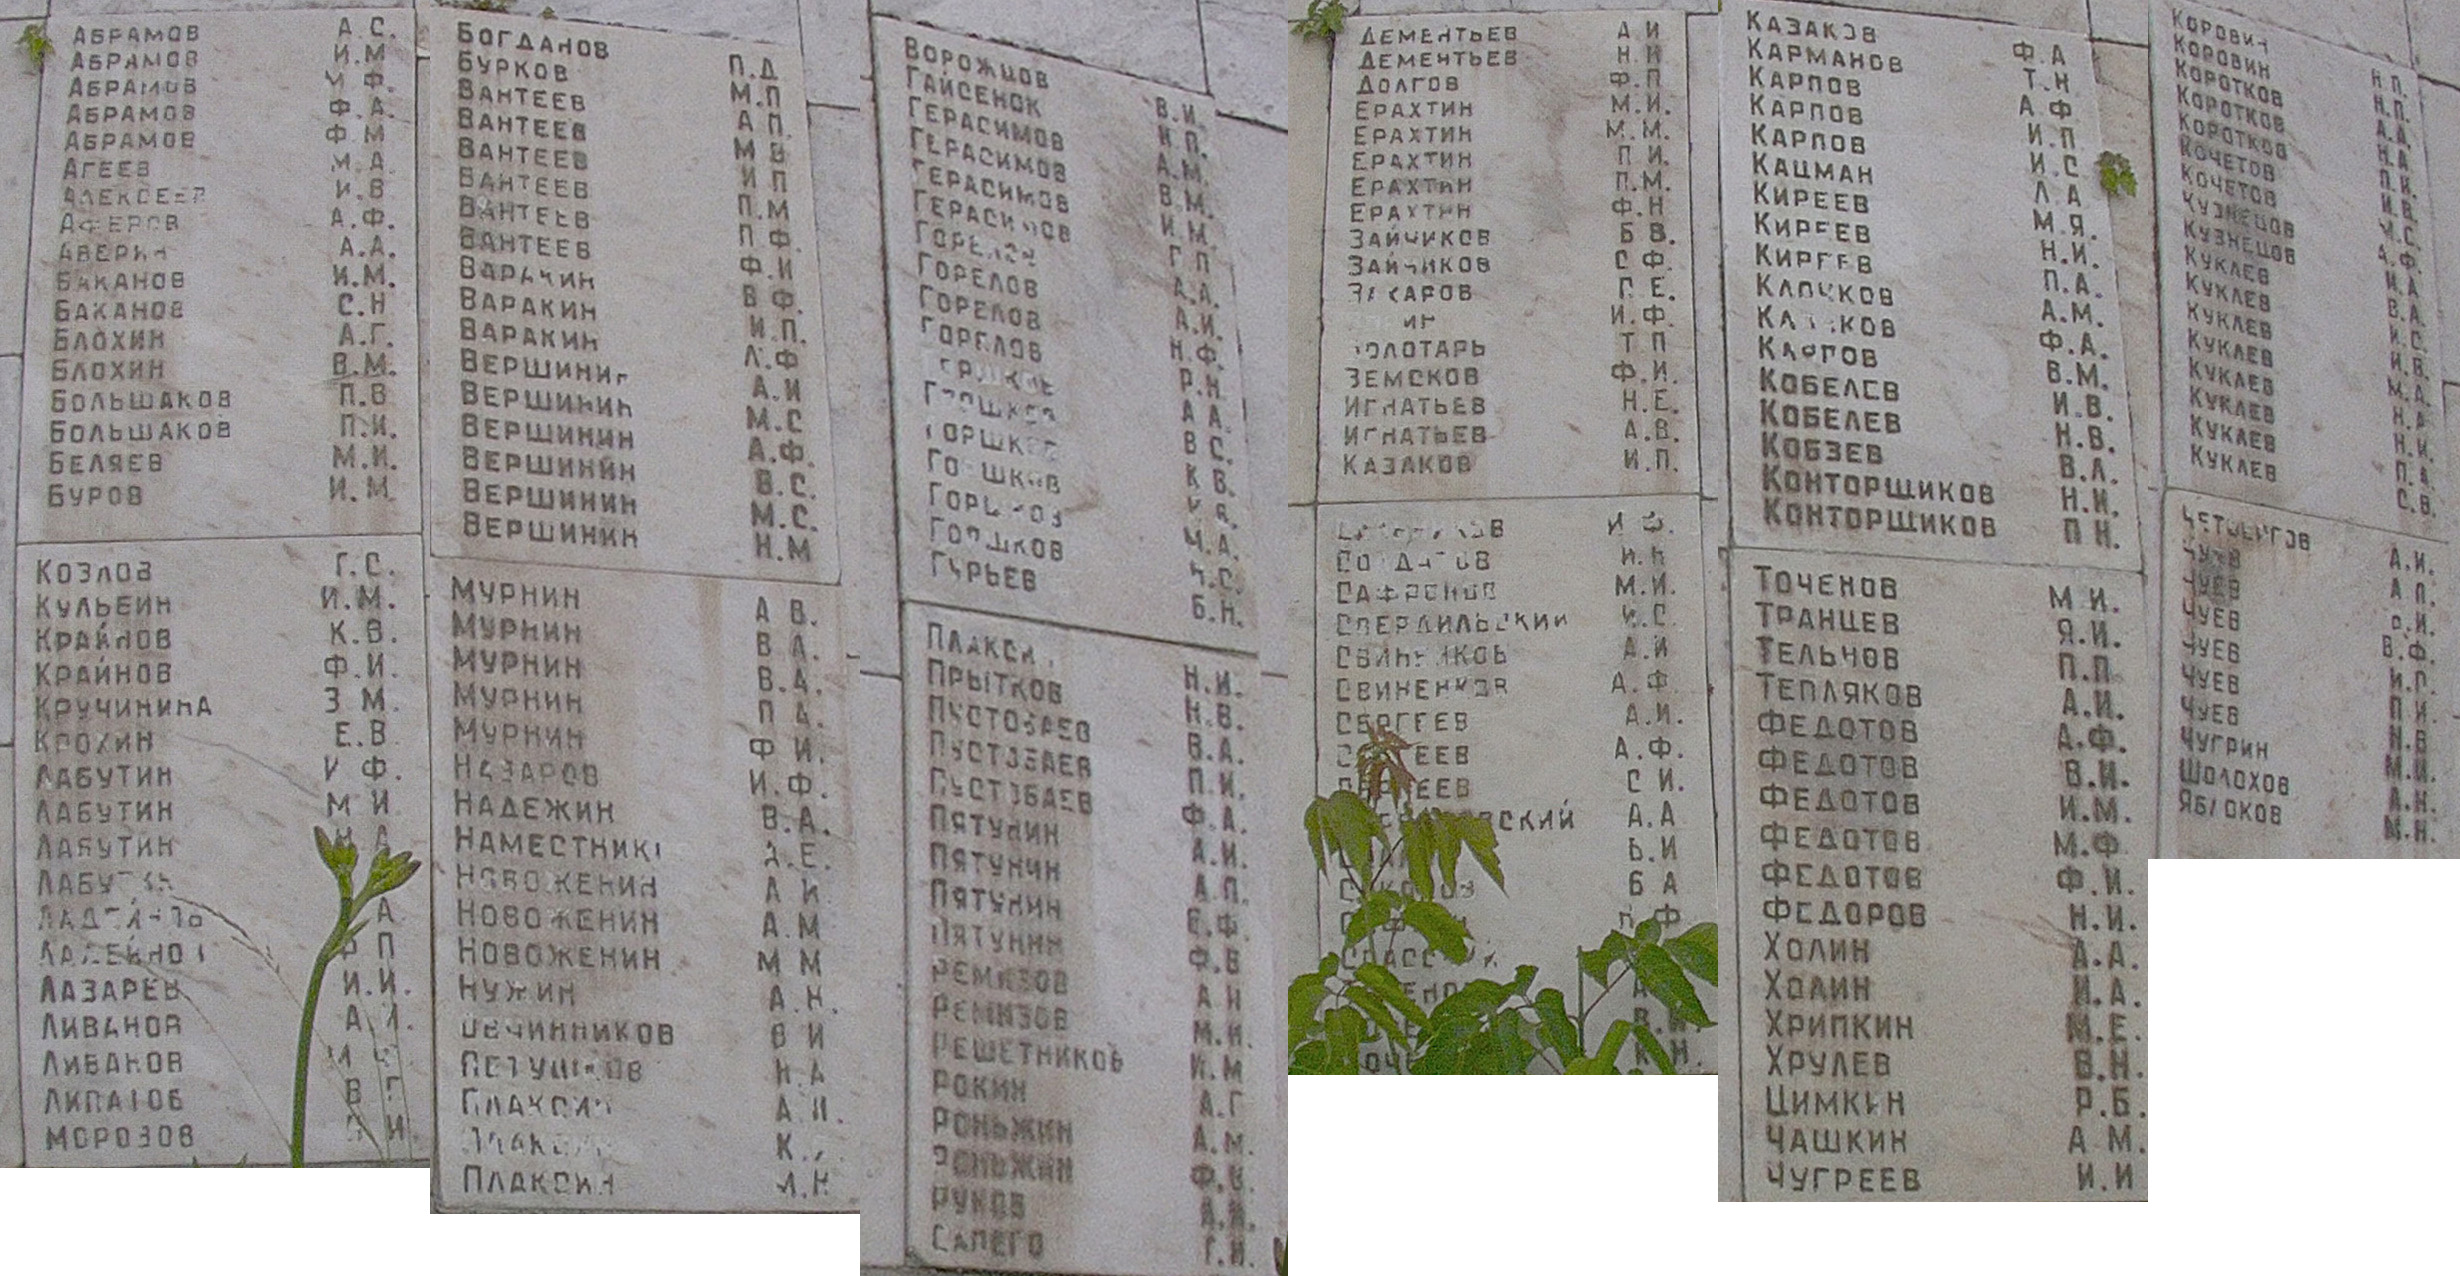 АБРАМОВ А.С.
АБРАМОВ И.М
АБРАМОВ М Ф.
АБРАМОВ Ф.А.
АБРАМОВ Ф М
АГЕЕВ М.А
АЛЕКСЕЕВ И.В
АФЕРОВ А.Ф.
АВЕРИН А.А.
БАКАНОВ И.М.
БАКАНОВ С.Н
БЛОХИН А.Г.
БЛОХИН В.М.
БОЛЬШАКОВ П.В
БОЛЬШАКОВ П.И.
БЕЛЯЕВ М.И.
БУРОВ И.М
БОГДАНОВ П.Д
БУРКОВ М.П
ВАНТЕЕВ А П.
ВАНТЕЕВ М В
ВАНТЕЕВ И П
ВАНТЕЕВ П.М
ВАНТЕЕВ П Ф.
ВАНТЕЕВ Ф.И
ВАРАКИН В Ф.
ВАРАКИН И.П.
ВАРАКИН Л.Ф
ВЕРШИНИН А.И
ВЕРШИНИН М.С
ВЕРШИНИН А.Ф.
ВЕРШИНИН В.С.
ВЕРШИНИН М.С.
ВЕРШИНИН Н.М
ВОРОЖЦОВ В.И.
ГАЙСЕНОК Н.П.
ГЕРАСИМОВ А.М.
ГЕРАСИМОВ В.М.
ГЕРАСИМОВ И.М.
ГЕРАСИМОВ Г П
ГОРЕЛОВ А.А.
ГОРЕЛОВ А.И.
ГОРЕЛОВ Н.Ф.
ГОРЕЛОВ Р.Н
А А.
ГОРШКОВ В С.
ГОРШКОВ К В.
ГОРШКОВ
ГОРШКОВ М.А.
ГОРШКОВ Н.С.
ГУРЬЕВ Б.Н.
ДЕМЕНТЬЕВ А.И
ДЕМЕНТЬЕВ Н.И
ДОЛГОВ Ф.П
ЕРАХТИН М.И.
ЕРАХТИН М.М.
ЕРАХТИН П И.
ЕРАХТИН П.М.
ЕРАХТИН Ф.Н
ЗАЙЧИКОВ Б В.
ЗАЙЧИКОВ С Ф.
ЗАХАРОВ Г.Е.
И.Ф.
ЗОЛОТАРЬ Т П
ЗЕМСКОВ Ф.И.
ИГНАТЬЕВ Н.Е.
ИГНАТЬЕВ А.В.
КАЗАКОВ И.П.
КАЗАКОВ Ф.А
КАРМАНОВ Т.Н
КАРПОВ А.Ф
КАРПОВ И.П
КАРПОВ И.С
КАЦМАН Л А
КИРЕЕВ М.Я.
КИРЕЕВ Н.И.
КИРЕЕВ П.А.
КЛОЧКОВ А.М.
КЛОЧКОВ Ф.А.
В.М.
КОБЕЛЕВ И.В.
КОБЕЛЕВ Н.В.
КОБЗЕВ В.Л.
КОНТОРЩИКОВ Н.И.
КОНТОРЩИКОВ П Н.
КОРОВИН Н.П.
КОРОВИН Н.П.
КОРОТКОВ А.А.
КОРОТКОВ Н.А.
КОРОТКОВ П.И.
КОЧЕТОВ И.В.
КОЧЕТОВ М.С.
КУЗНЕЦОВ А.Ф.
КУЗНЕЦОВ И.А
КУКЛЕВ В.А.
КУКЛЕВ И.С.
КУКЛЕВ И.В.
КУКЛЕВ М.А.
КУКЛЕВ Н.А
КУКЛЕВ Н.И.
КУКЛЕВ П.А.
КУКЛЕВ С.В.
КОЗЛОВ Г.С.
КУЛЬБИН И.М.
КРАЙНОВ К.В.
КРАЙНОВ Ф.И.
КРУЧИНИНА З М.
КРОХИН Е.В
ЛАБУТИН И Ф.
ЛАБУТИН М И
ЛАБУТИН Н А
ЛАБУТИН
А.
ЛАДЕЙНОВ П
ЛАЗАРЕВ И.И.
ЛИВАНОВ
ЛИВАНОВ
ЛИПАТОВ В Г
МОРОЗОВ И
МУРНИН А В.
МУРНИН В А.
МУРНИН В.А.
МУРНИН П А.
МУРНИН Ф И.
НАЗАРОВ И.Ф.
НАДЕЖИН В.А.
НАМЕСТНИК А.Е.
НОВОЖЕНИН А И
НОВОЖЕНИН А.М
НОВОЖЕНИН М М
НУЖИН А.Н.
ОВЧИННИКОВ В И
ПЕТУШКОВ Н.А
ПЛАКСИН А И.
ПЛАКСИН К.
ПЛАКСИН А.Н
ПЛАКСИН Н.И.
ПРЫТКОВ Н.В.
ПУСТОБАЕВ В.А.
ПУСТОБАЕВ П.И.
ПУСТОБАЕВ Ф.А.
ПЯТУНИН А.И.
ПЯТУНИН А.П.
ПЯТУНИН Е.Ф.
ПЯТУНИН Ф.В
РЕМИЗОВ А Н
РЕМИЗОВ М.И.
РЕШЕТНИКОВ И.М
РОКИН А.Г
РОНЬЖИН А.М.
РОНЬЖИН Ф.В.
РУКОВ А.И.
САПЕГО Г.И.
СОЛДАТОВ И.Н
САФРОНОВ М.И.
СВЕРДИЛЬСКИЙ И.С.
СВИНЕНКОВ А.И
СВИНЕНКОВ А.Ф
СЕРГЕЕВ А.И.
СЕРГЕЕВ А.Ф.
СЕРГЕЕВ С И.
А.А
В.И
Б А
ТОЧЕНОВ М И.
ТРАНЦЕВ Я.И.
ТЕЛЬНОВ П.П
ТЕПЛЯКОВ А.И.
ФЕДОТОВ А.Ф.
ФЕДОТОВ В.И.
ФЕДОТОВ И.М.
ФЕДОТОВ М.Ф.
ФЕДОТОВ Ф.И.
ФЕДОРОВ Н.И.
ХОЛИН А.А.
ХОЛИН И.А.
ХРИПКИН М.Е.
ХРУЛЕВ В.Н.
ЦИМКИН Р.Б.
ЧАШКИН А М.
ЧУГРЕЕВ И.И
ЧЕТВЕРГОВ А.И.
ЧУЕВ А П.
ЧУЕВ
ЧУЕВ В.Ф.
ЧУЕВ И.П.
ЧУЕВ П И.
ЧУЕВ Н.В
ЧУГРИН М.И.
ШОЛОХОВ А.Н.
ЯБЛОКОВ М.Н.